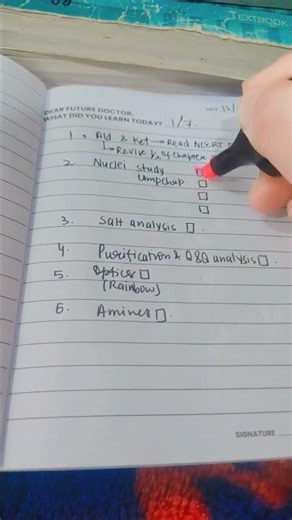 TEXTBOOK
DEAR FUTURE DOCTOR,
WHAT DID YOU LEARN TODAY? 1/7
DATE 12/
1. Ald & Ket → Read NCERT
↳ Revise 1/2 of chapter
2. Nuclei study
comp chap
3. Salt analysis
4. Purification & Q&Q analysis
5. Optics
(Rainbow)
6. Amines
SIGNATURE